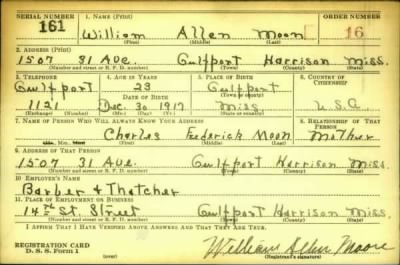 SERIAL NUMBER 1. NAME (Print) ORDER NUMBER
161 William Allen Moon 16
(First) (Middle) (Last)
2. ADDRESS (Print)
1507 31 Ave. Gulfport Harrison Miss.
(Number and street or R. F. D. number) (Town) (County) (State)
3. TELEPHONE 4. AGE IN YEARS 5. PLACE OF BIRTH 6. COUNTRY OF CITIZENSHIP
Gulfport 23 Gulfport
(Exchange) DATE OF BIRTH (Town or county)
1121 Dec. 30 1917 Miss U.S.A.
(Number) (Mo.) (Day) (Yr.) (State or country)
7. NAME OF PERSON WHO WILL ALWAYS KNOW YOUR ADDRESS 8. RELATIONSHIP OF THAT PERSON
Charles Frederick Moon Mother
(First) (Middle) (Last)
9. ADDRESS OF THAT PERSON
1507 31 Ave. Gulfport Harrison Miss.
(Number and street or R. F. D. number) (Town) (County) (State)
10. EMPLOYER'S NAME
Barber & Thatcher
11. PLACE OF EMPLOYMENT OR BUSINESS
14th St. Street Gulfport Harrison Miss.
(Number and street or R. F. D. number) (Town) (County) (State)
I AFFIRM THAT I HAVE VERIFIED ABOVE ANSWERS AND THAT THEY ARE TRUE.
REGISTRATION CARD
D. S. S. Form 1 (over) William Allen Moon
(Registrant's signature)